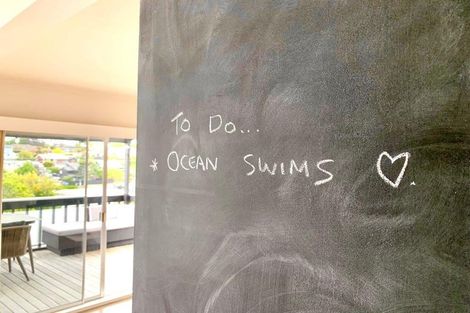 To Do...
* OCEAN SWIMS ♡.